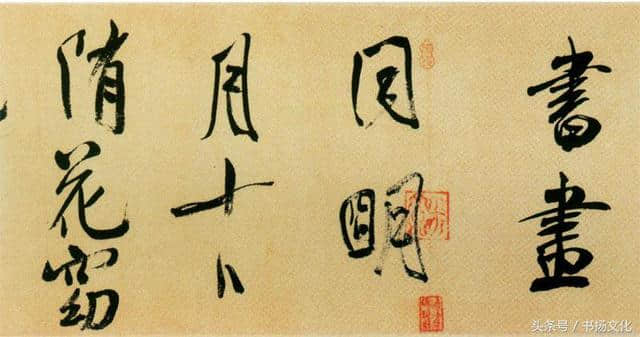 書畫
同明
月十日
隋花窈
头条号 / 书杨文化